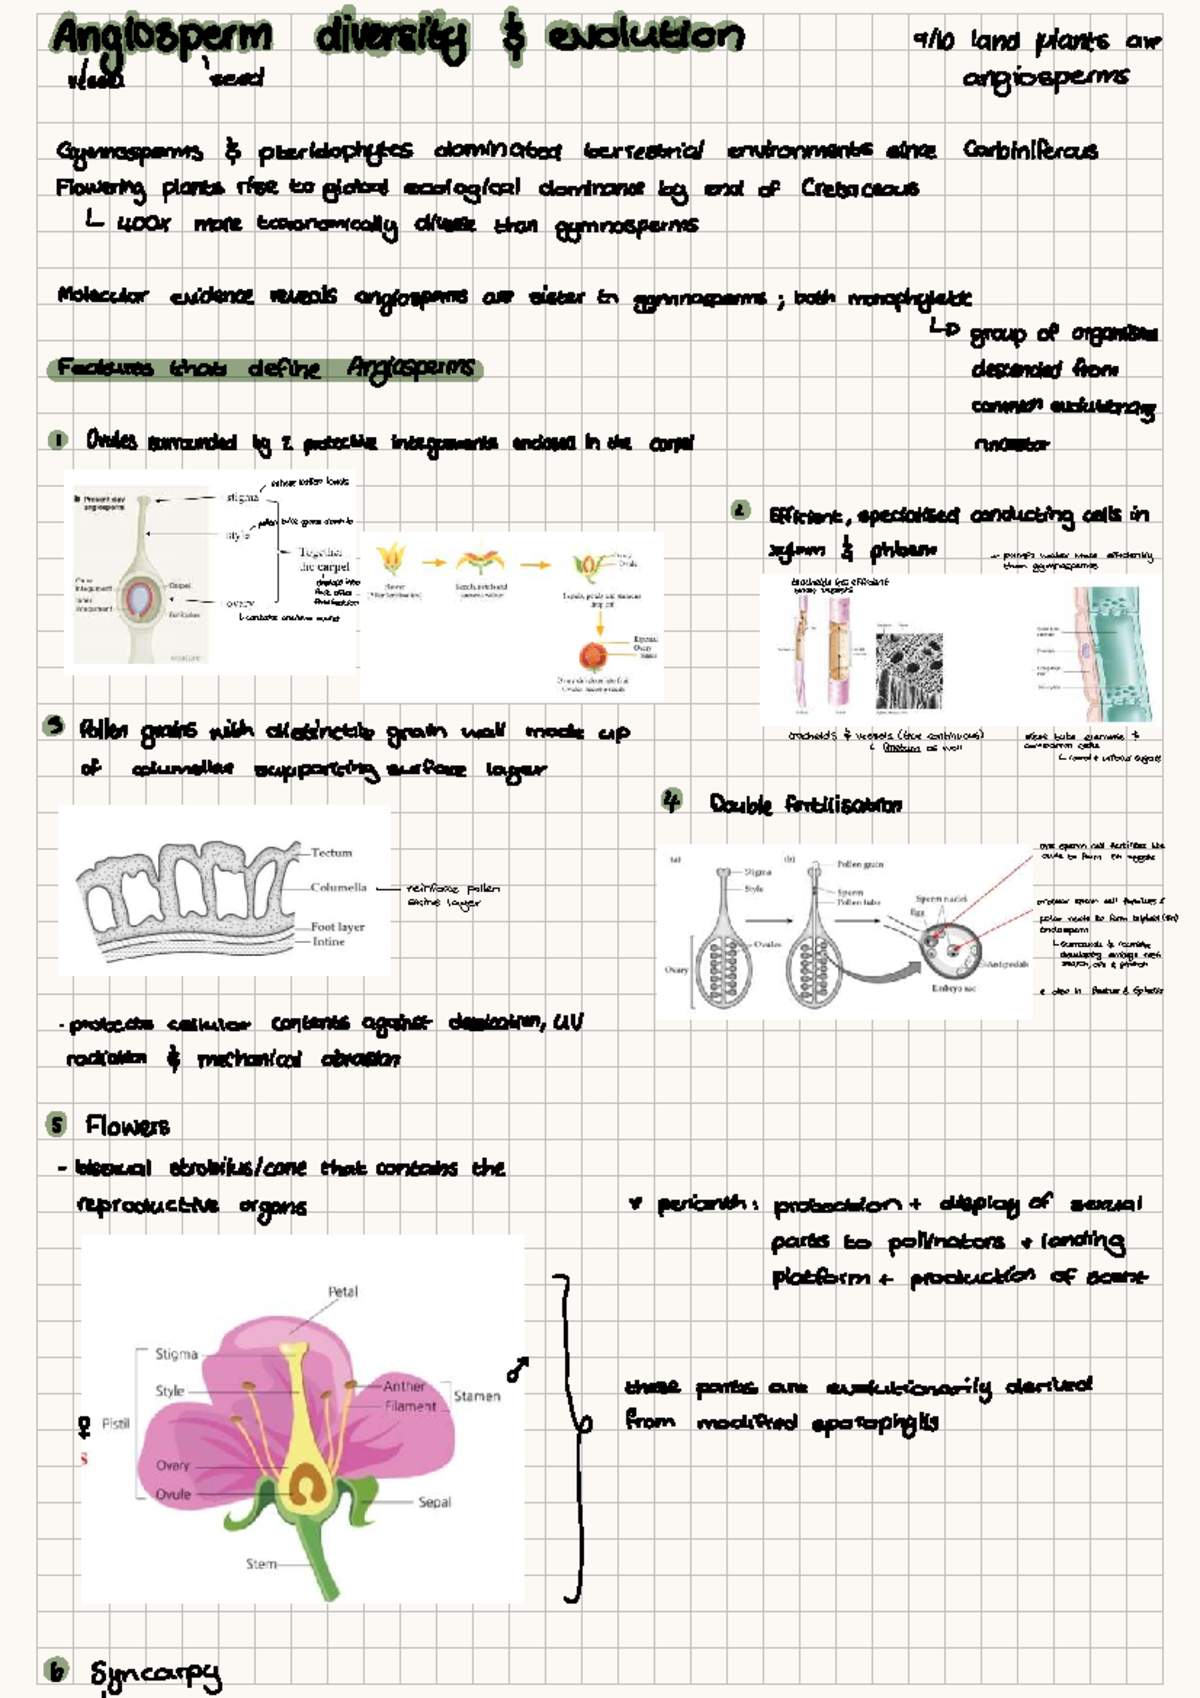 Angiosperm diversity & evolution
vessel seed
9/10 land plants are
angiosperms
Gymnosperms & pteridophytes dominated terrestrial environments since Carbiniferous
Flowering plants rise to global ecological dominance by end of Cretaceous
400x more taxonomically diverse than gymnosperms
Molecular evidence reveals angiosperms are sister to gymnosperms ; both monophyletic
group of organisms
descended from
common evolutionary
ancestor
Features that define Angiosperms
1 Ovules surrounded by 2 protective integuments enclosed in the carpel
Present day
angiosperms
stigma
where pollen lands
style
pollen tube grows down to
Together
the carpel
develops into
fruit after
fertilisation
Outer
integument
Inner
integument
Carpel
Funiculus
ovary
contains one/more ovules
Ovary
Ovule
2 Efficient, specialised conducting cells in
xylem & phloem
pumps water more efficiently
than gymnosperms
tracheids less efficient
tracheids & vessels (true continuous)
sieve tube elements &
companion cells
3 Pollen grains with distinctive grain wall made up
of columellae supporting surface layer
Tectum
Columella
reinforce pollen
exine layer
Foot layer
Intine
- protects cellular contents against desiccation, UV
radiation & mechanical abrasion
4 Double fertilisation
(a)
(b)
Stigma
Style
Pollen grain
Sperm
Pollen tube
Sperm nuclei
Egg
Ovules
Ovary
Antipodals
Embryo sac
one sperm cell fertilises the
ovule to form 2n zygote
another sperm cell fertilises 2
polar nuclei to form triploid (3n)
endosperm
surrounds & nourishes
developing embryo with
starch, oils & protein
5 Flowers
- bisexual strobilus/cone that contains the
reproductive organs
* perianth: protection + display of sexual
parts to pollinators + landing
platform + production of scent
Petal
Stigma
Style
♀ Pistil
Anther
Filament
Stamen
♂
s
Ovary
Ovule
Sepal
Stem
these parts are evolutionarily derived
from modified sporophylls
6 Syncarpy